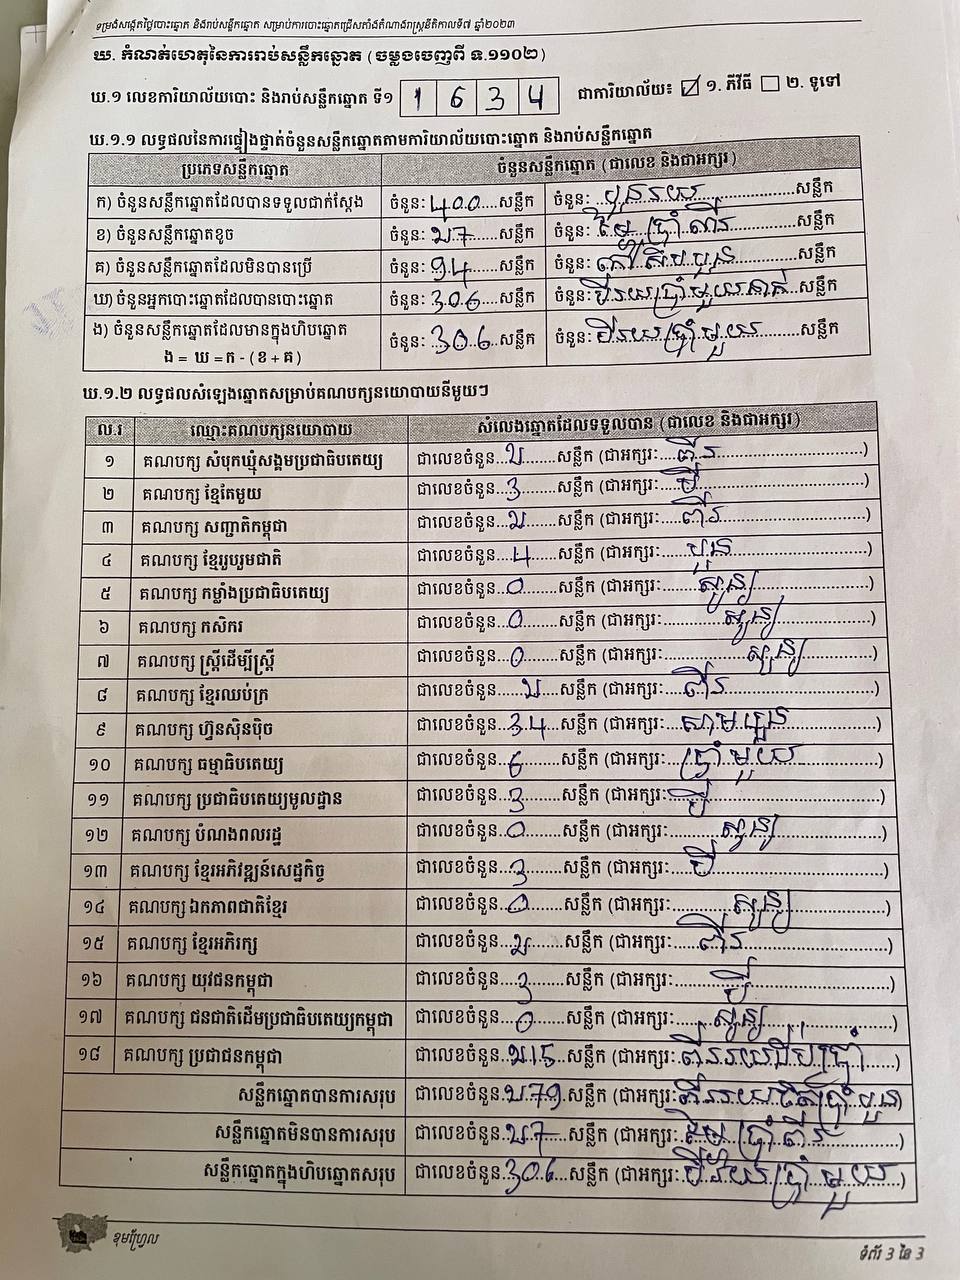 ទម្រង់សង្កេតថ្ងៃបោះឆ្នោត និងរាប់សន្លឹកឆ្នោត សម្រាប់ការបោះឆ្នោតជ្រើសតាំងតំណាងរាស្ត្រនីតិកាលទី៧ ឆ្នាំ២០២៣
ឃ. កំណត់ហេតុនៃការរាប់សន្លឹកឆ្នោត (ចម្លងចេញពី ទ.១១០២)
ឃ.១ លេខការិយាល័យបោះ និងរាប់សន្លឹកឆ្នោត ទី១ 1 6 3 4 ជាការិយាល័យ៖ ☑ ១. ភីវីធី ☐ ២. ទូទៅ
ឃ.១.១ លទ្ធផលនៃការផ្ទៀងផ្ទាត់ចំនួនសន្លឹកឆ្នោតតាមការិយាល័យបោះឆ្នោត និងរាប់សន្លឹកឆ្នោត
ប្រភេទសន្លឹកឆ្នោត ចំនួនសន្លឹកឆ្នោត (ជាលេខ និងជាអក្សរ)
ក) ចំនួនសន្លឹកឆ្នោតដែលបានទទួលជាក់ស្តែង ចំនួនៈ 400 សន្លឹក ចំនួនៈ បួនរយ សន្លឹក
ខ) ចំនួនសន្លឹកឆ្នោតខូច ចំនួនៈ ២7 សន្លឹក ចំនួនៈ ម្ភៃប្រាំពីរ សន្លឹក
គ) ចំនួនសន្លឹកឆ្នោតដែលមិនបានប្រើ ចំនួនៈ 94 សន្លឹក ចំនួនៈ កៅសិបបួន សន្លឹក
ឃ) ចំនួនអ្នកបោះឆ្នោតដែលបានបោះឆ្នោត ចំនួនៈ 306 សន្លឹក ចំនួនៈ បីរយប្រាំមួយនាក់ សន្លឹក
ង) ចំនួនសន្លឹកឆ្នោតដែលមានក្នុងហិបឆ្នោត ចំនួនៈ 306 សន្លឹក ចំនួនៈ បីរយប្រាំមួយ សន្លឹក
ង = ឃ = ក - (ខ + គ)
ឃ.១.២ លទ្ធផលសំឡេងឆ្នោតសម្រាប់គណបក្សនយោបាយនីមួយៗ
ល.រ ឈ្មោះគណបក្សនយោបាយ សំលេងឆ្នោតដែលទទួលបាន (ជាលេខ និងជាអក្សរ)
១ គណបក្ស សំបុកឃ្មុំសង្គមប្រជាធិបតេយ្យ ជាលេខចំនួន ២ សន្លឹក (ជាអក្សរៈ ពីរ)
២ គណបក្ស ខ្មែរតែមួយ ជាលេខចំនួន 3 សន្លឹក (ជាអក្សរៈ បី)
៣ គណបក្ស សញ្ជាតិកម្ពុជា ជាលេខចំនួន ២ សន្លឹក (ជាអក្សរៈ ពីរ)
៤ គណបក្ស ខ្មែររួបរួមជាតិ ជាលេខចំនួន 4 សន្លឹក (ជាអក្សរៈ បួន)
៥ គណបក្ស កម្លាំងប្រជាធិបតេយ្យ ជាលេខចំនួន 0 សន្លឹក (ជាអក្សរៈ សូន្យ)
៦ គណបក្ស កសិករ ជាលេខចំនួន 0 សន្លឹក (ជាអក្សរៈ សូន្យ)
៧ គណបក្ស ស្ត្រីដើម្បីស្ត្រី ជាលេខចំនួន 0 សន្លឹក (ជាអក្សរៈ សូន្យ)
៨ គណបក្ស ខ្មែរឈប់ក្រ ជាលេខចំនួន ២ សន្លឹក (ជាអក្សរៈ ពីរ)
៩ គណបក្ស ហ៊្វុនស៊ិនប៉ិច ជាលេខចំនួន 34 សន្លឹក (ជាអក្សរៈ សាមបួន)
១០ គណបក្ស ធម្មាធិបតេយ្យ ជាលេខចំនួន 6 សន្លឹក (ជាអក្សរៈ ប្រាំមួយ)
១១ គណបក្ស ប្រជាធិបតេយ្យមូលដ្ឋាន ជាលេខចំនួន 3 សន្លឹក (ជាអក្សរៈ បី)
១២ គណបក្ស បំណងពលរដ្ឋ ជាលេខចំនួន 0 សន្លឹក (ជាអក្សរៈ សូន្យ)
១៣ គណបក្ស ខ្មែរអភិវឌ្ឍន៍សេដ្ឋកិច្ច ជាលេខចំនួន 3 សន្លឹក (ជាអក្សរៈ បី)
១៤ គណបក្ស ឯកភាពជាតិខ្មែរ ជាលេខចំនួន 0 សន្លឹក (ជាអក្សរៈ សូន្យ)
១៥ គណបក្ស ខ្មែរអភិរក្ស ជាលេខចំនួន ២ សន្លឹក (ជាអក្សរៈ ពីរ)
១៦ គណបក្ស យុវជនកម្ពុជា ជាលេខចំនួន 3 សន្លឹក (ជាអក្សរៈ បី)
១៧ គណបក្ស ជនជាតិដើមប្រជាធិបតេយ្យកម្ពុជា ជាលេខចំនួន 0 សន្លឹក (ជាអក្សរៈ សូន្យ)
១៨ គណបក្ស ប្រជាជនកម្ពុជា ជាលេខចំនួន ២15 សន្លឹក (ជាអក្សរៈ ពីររយដប់ប្រាំ)
សន្លឹកឆ្នោតបានការសរុប ជាលេខចំនួន ២79 សន្លឹក (ជាអក្សរៈ ពីររយចិតប្រាំបួន)
សន្លឹកឆ្នោតមិនបានការសរុប ជាលេខចំនួន ២7 សន្លឹក (ជាអក្សរៈ ម្ភៃប្រាំពីរ)
សន្លឹកឆ្នោតក្នុងហិបឆ្នោតសរុប ជាលេខចំនួន 306 សន្លឹក (ជាអក្សរៈ បីរយប្រាំមួយ)
ខុមហ្វ្រែល
ទំព័រ 3 នៃ 3